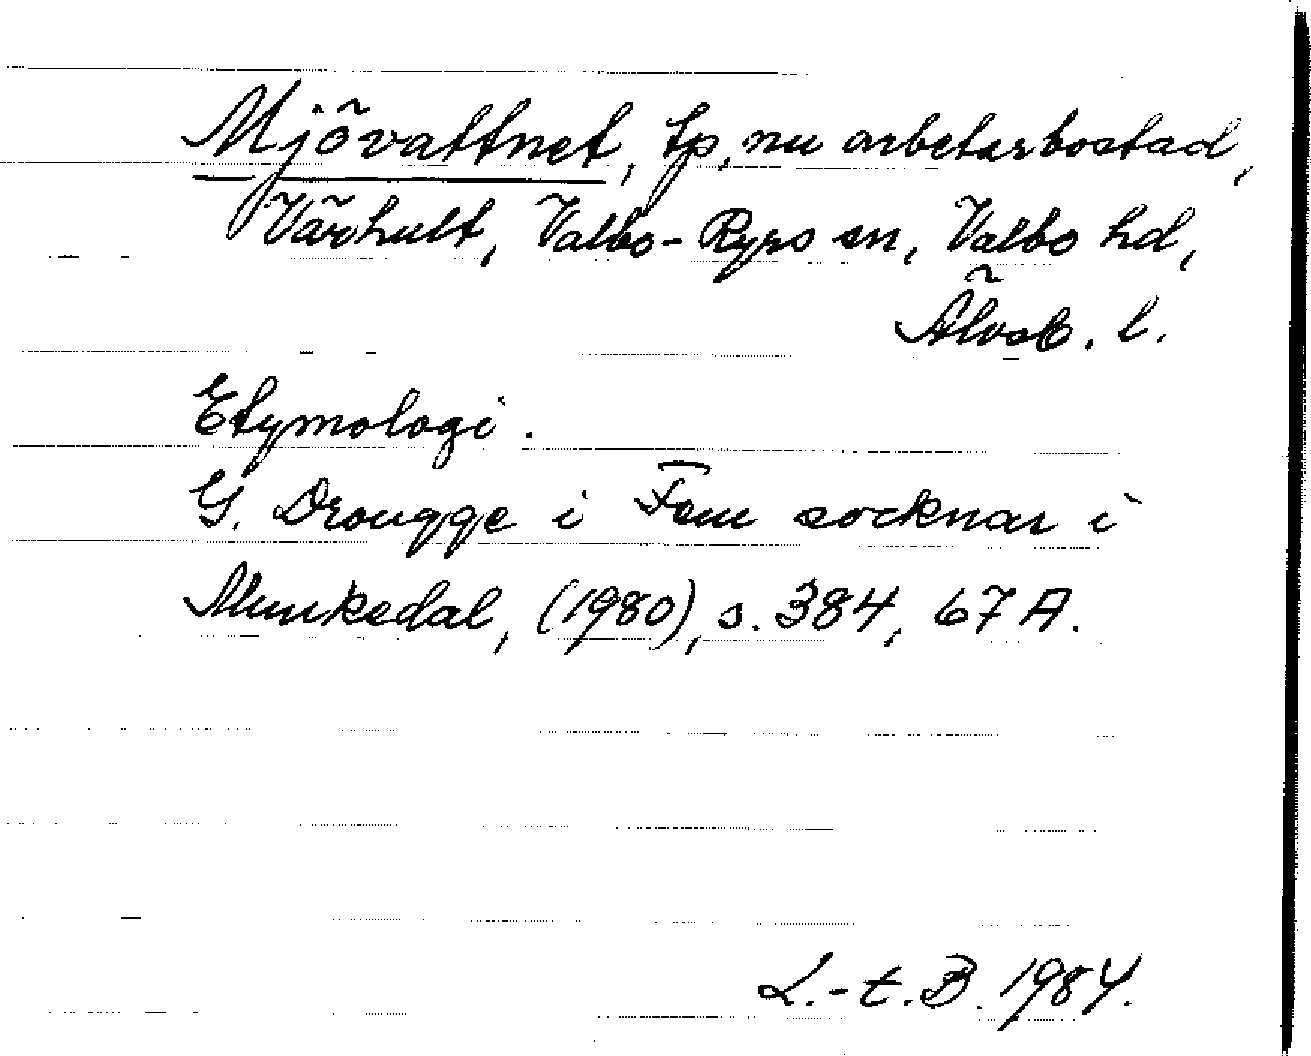 Mjövattnet, tp, nu arbetarbostad,
Värhult, Valbo-Ryrs sn, Valbo hd,
Älvsb. l.
Etymologi.
G. Drougge i Fem socknar i
Munkedal, (1980), s. 384, 67A.
L.-t. B. 1984.